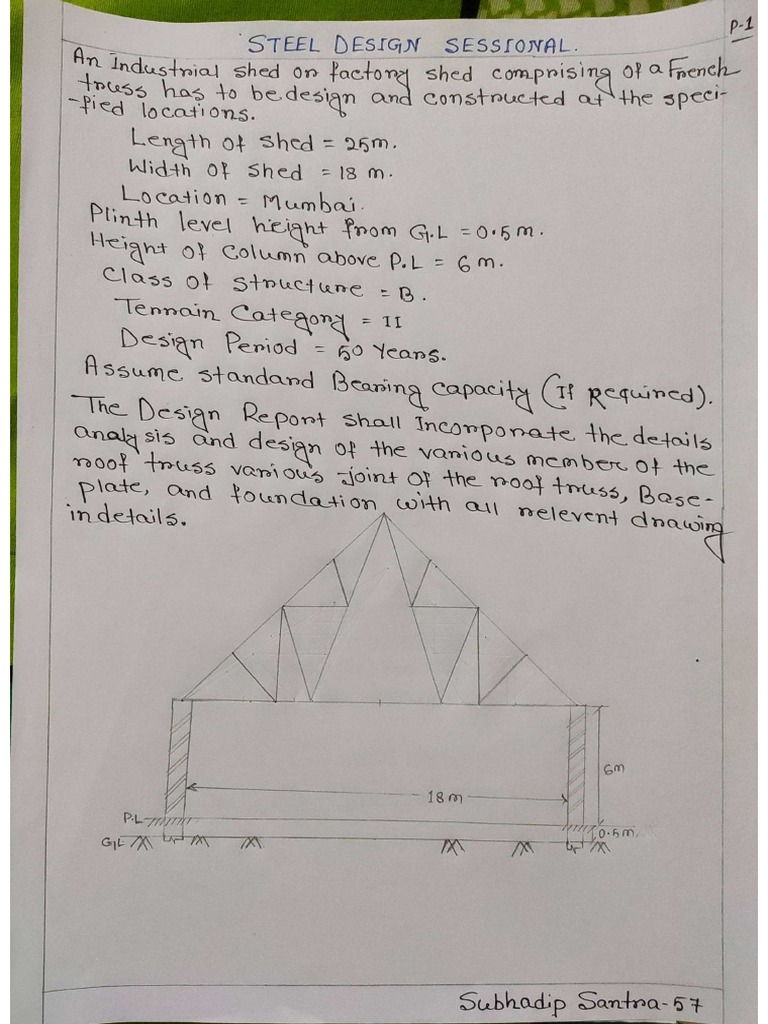 P-1
STEEL DESIGN SESSIONAL.
An Industrial shed or factory shed comprising of a French
truss has to be design and constructed at the speci-
-fied locations.
Length of shed = 25m.
Width of shed = 18 m.
Location = Mumbai.
Plinth level height from G.L = 0.5 m.
Height of Column above P.L = 6 m.
Class of structure = B.
Terrain Category = II
Design Period = 50 Years.
Assume standard Bearing capacity (If Required).
The Design Report shall Incorporate the details
analysis and design of the various member of the
roof truss various joint of the roof truss, Base-
plate, and foundation with all relevent drawing
in details.
6m
18 m
P.L
G.L
0.5m.
Subhadip Santra-57